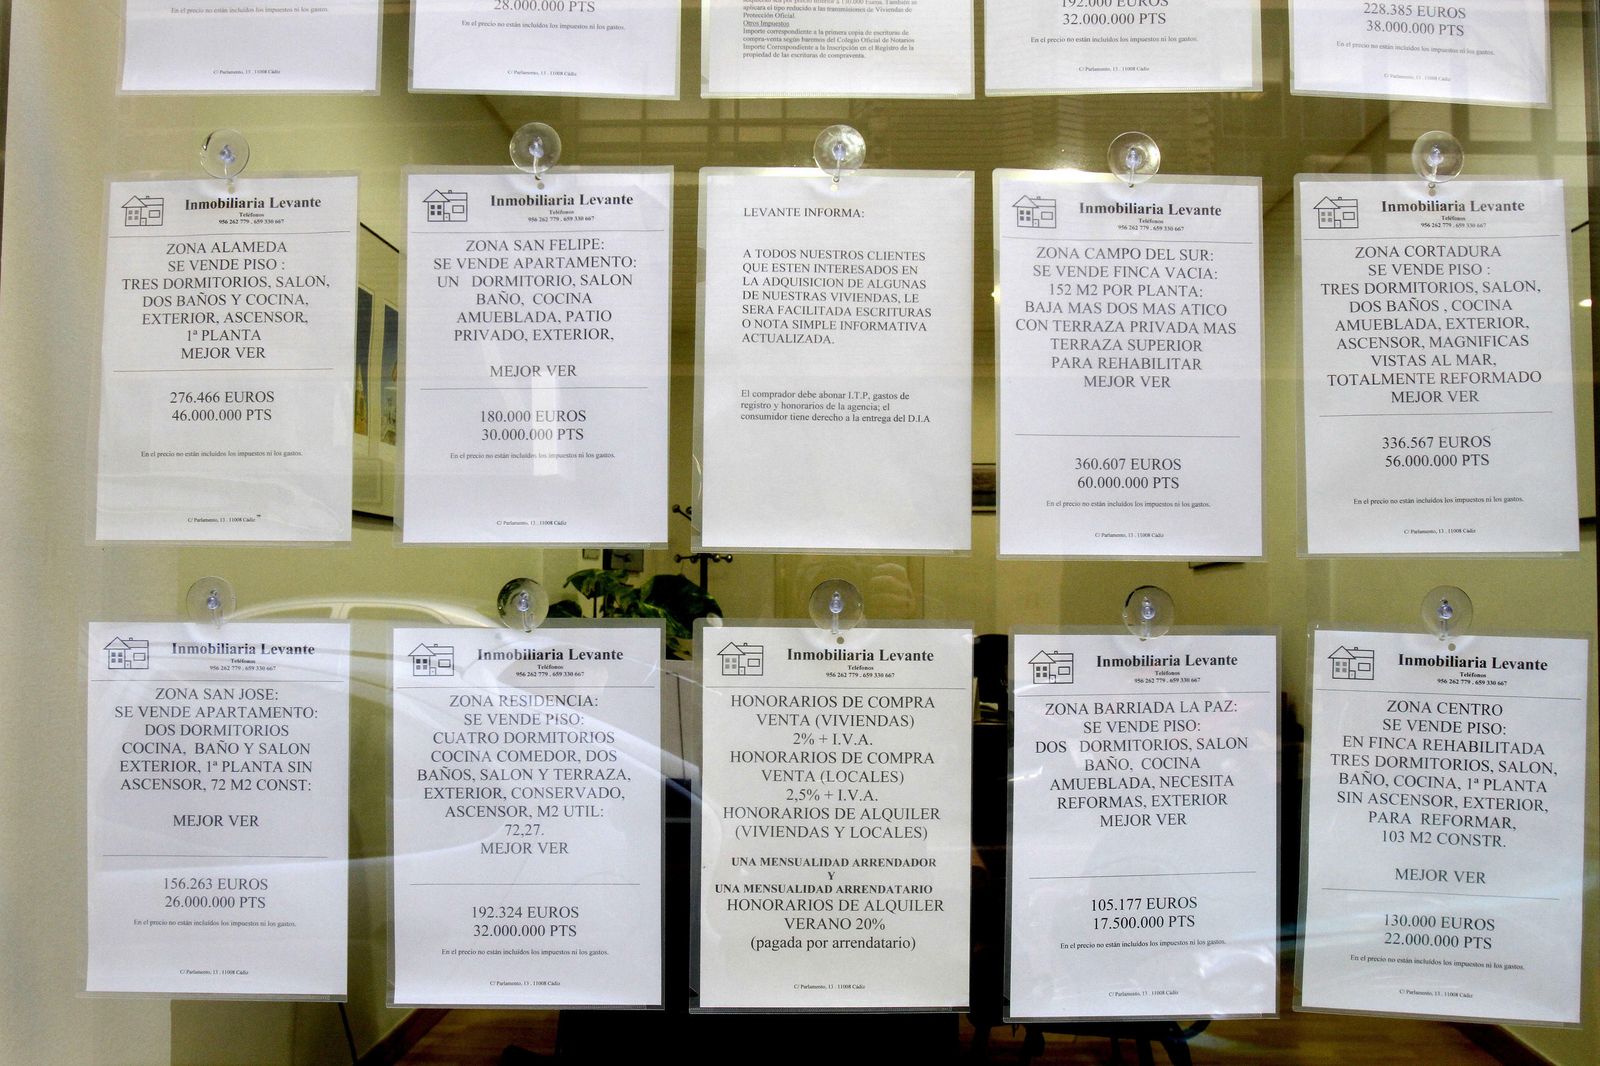 En el precio no están incluidos los impuestos ni los gastos.
C/ Parlamento, 13 . 11008 Cádiz
28.000.000 PTS
En el precio no están incluidos los impuestos ni los gastos.
aplicara el tipo reducido a las transmisiones de Viviendas de
Protección Oficial.
Otros Impuestos
Importe correspondiente a la primera copia de escrituras de
compra-venta según baremos del Colegio Oficial de Notarios
Importe Correspondiente a la Inscripción en el Registro de la
propiedad de las escrituras de compraventa.
192.000 EUROS
32.000.000 PTS
En el precio no están incluidos los impuestos ni los gastos.
C/ Parlamento, 13 . 11008 Cádiz
228.385 EUROS
38.000.000 PTS
En el precio no están incluidos los impuestos ni los gastos.
C/ Parlamento, 13 . 11008 Cádiz
Inmobiliaria Levante
Teléfonos
956 262 779 . 659 330 667
ZONA ALAMEDA
SE VENDE PISO :
TRES DORMITORIOS, SALON,
DOS BAÑOS Y COCINA,
EXTERIOR, ASCENSOR,
1ª PLANTA
MEJOR VER
276.466 EUROS
46.000.000 PTS
En el precio no están incluidos los impuestos ni los gastos.
C/ Parlamento, 13 . 11008 Cádiz
Inmobiliaria Levante
Teléfonos
956 262 779 . 659 330 667
ZONA SAN FELIPE:
SE VENDE APARTAMENTO:
UN DORMITORIO, SALON
BAÑO, COCINA
AMUEBLADA, PATIO
PRIVADO, EXTERIOR,
MEJOR VER
180.000 EUROS
30.000.000 PTS
En el precio no están incluidos los impuestos ni los gastos.
C/ Parlamento, 13 . 11008 Cádiz
LEVANTE INFORMA:
A TODOS NUESTROS CLIENTES
QUE ESTEN INTERESADOS EN
LA ADQUISICION DE ALGUNAS
DE NUESTRAS VIVIENDAS, LE
SERA FACILITADA ESCRITURAS
O NOTA SIMPLE INFORMATIVA
ACTUALIZADA.
El comprador debe abonar I.T.P, gastos de
registro y honorarios de la agencia; el
consumidor tiene derecho a la entrega del D.I.A
Inmobiliaria Levante
Teléfonos
956 262 779 . 659 330 667
ZONA CAMPO DEL SUR:
SE VENDE FINCA VACIA:
152 M2 POR PLANTA:
BAJA MAS DOS MAS ATICO
CON TERRAZA PRIVADA MAS
TERRAZA SUPERIOR
PARA REHABILITAR
MEJOR VER
360.607 EUROS
60.000.000 PTS
En el precio no están incluidos los impuestos ni los gastos.
C/ Parlamento, 13 . 11008 Cádiz
Inmobiliaria Levante
Teléfonos
956 262 779 . 659 330 667
ZONA CORTADURA
SE VENDE PISO :
TRES DORMITORIOS, SALON,
DOS BAÑOS , COCINA
AMUEBLADA, EXTERIOR,
ASCENSOR, MAGNIFICAS
VISTAS AL MAR,
TOTALMENTE REFORMADO
MEJOR VER
336.567 EUROS
56.000.000 PTS
En el precio no están incluidos los impuestos ni los gastos.
C/ Parlamento, 13 . 11008 Cádiz
Inmobiliaria Levante
Teléfonos
956 262 779 . 659 330 667
ZONA SAN JOSE:
SE VENDE APARTAMENTO:
DOS DORMITORIOS
COCINA, BAÑO Y SALON
EXTERIOR, 1ª PLANTA SIN
ASCENSOR, 72 M2 CONST:
MEJOR VER
156.263 EUROS
26.000.000 PTS
En el precio no están incluidos los impuestos ni los gastos.
C/ Parlamento, 13 . 11008 Cádiz
Inmobiliaria Levante
Teléfonos
956 262 779 . 659 330 667
ZONA RESIDENCIA:
SE VENDE PISO:
CUATRO DORMITORIOS
COCINA COMEDOR, DOS
BAÑOS, SALON Y TERRAZA,
EXTERIOR, CONSERVADO,
ASCENSOR, M2 UTIL:
72,27.
MEJOR VER
192.324 EUROS
32.000.000 PTS
En el precio no están incluidos los impuestos ni los gastos.
C/ Parlamento, 13 . 11008 Cádiz
Inmobiliaria Levante
Teléfonos
956 262 779 . 659 330 667
HONORARIOS DE COMPRA
VENTA (VIVIENDAS)
2% + I.V.A.
HONORARIOS DE COMPRA
VENTA (LOCALES)
2,5% + I.V.A.
HONORARIOS DE ALQUILER
(VIVIENDAS Y LOCALES)
UNA MENSUALIDAD ARRENDADOR
Y
UNA MENSUALIDAD ARRENDATARIO
HONORARIOS DE ALQUILER
VERANO 20%
(pagada por arrendatario)
C/ Parlamento, 13 . 11008 Cádiz
Inmobiliaria Levante
Teléfonos
956 262 779 . 659 330 667
ZONA BARRIADA LA PAZ:
SE VENDE PISO:
DOS DORMITORIOS, SALON
BAÑO, COCINA
AMUEBLADA, NECESITA
REFORMAS, EXTERIOR
MEJOR VER
105.177 EUROS
17.500.000 PTS
En el precio no están incluidos los impuestos ni los gastos.
C/ Parlamento, 13 . 11008 Cádiz
Inmobiliaria Levante
Teléfonos
956 262 779 . 659 330 667
ZONA CENTRO
SE VENDE PISO:
EN FINCA REHABILITADA
TRES DORMITORIOS, SALON,
BAÑO, COCINA, 1ª PLANTA
SIN ASCENSOR, EXTERIOR,
PARA REFORMAR,
103 M2 CONSTR.
MEJOR VER
130.000 EUROS
22.000.000 PTS
En el precio no están incluidos los impuestos ni los gastos.
C/ Parlamento, 13 . 11008 Cádiz